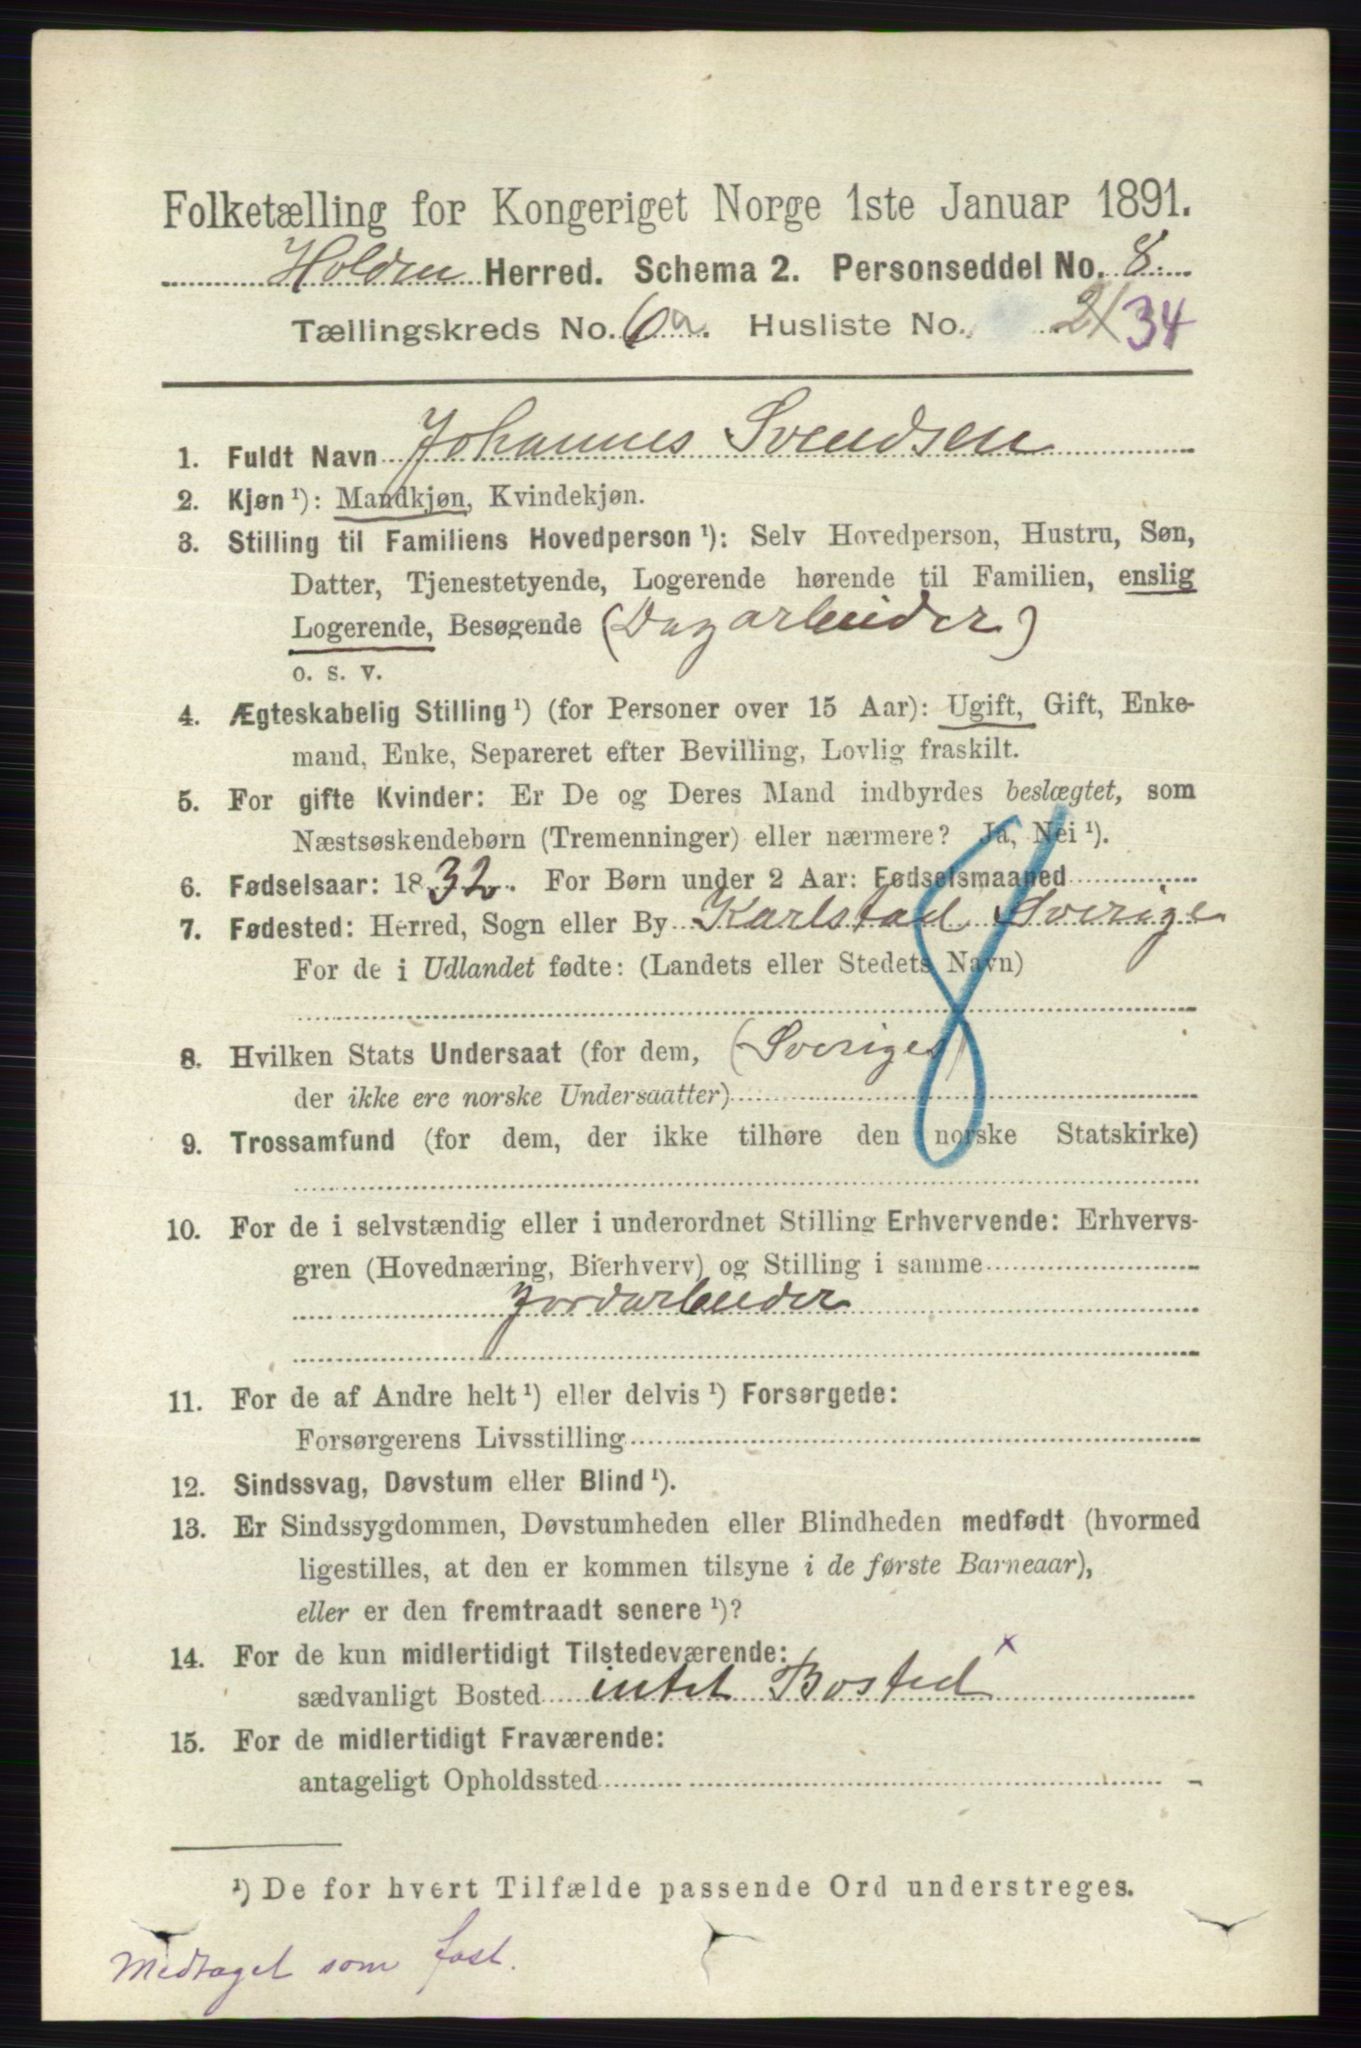 Folketælling for Kongeriget Norge 1ste Januar 1891.
Holden Herred. Schema 2. Personseddel No. 8.
Tællingskreds No. 6a. Husliste No. 21 34
1. Fuldt Navn Johannes Svendsen
2. Kjøn ¹): Mandkjøn, Kvindekjøn.
3. Stilling til Familiens Hovedperson ¹): Selv Hovedperson, Hustru, Søn,
Datter, Tjenestetyende, Logerende hørende til Familien, enslig
Logerende, Besøgende (Dagarbeider)
o. s. v.
4. Ægteskabelig Stilling ¹) (for Personer over 15 Aar): Ugift, Gift, Enke-
mand, Enke, Separeret efter Bevilling, Lovlig fraskilt.
5. For gifte Kvinder: Er De og Deres Mand indbyrdes beslægtet, som
Næstsøskendebørn (Tremenninger) eller nærmere? Ja, Nei ¹).
6. Fødselsaar: 1832. For Børn under 2 Aar: Fødselsmaaned
7. Fødested: Herred, Sogn eller By Karlstad Sverige
For de i Udlandet fødte: (Landets eller Stedets Navn)
8. Hvilken Stats Undersaat (for dem, (Sveriges)
der ikke ere norske Undersaatter)
9. Trossamfund (for dem, der ikke tilhøre den norske Statskirke)
10. For de i selvstændig eller i underordnet Stilling Erhvervende: Erhvervs-
gren (Hovednæring, Bierhverv) og Stilling i samme
Jordarbeider
11. For de af Andre helt ¹) eller delvis ¹) Forsørgede:
Forsørgerens Livsstilling
12. Sindssvag, Døvstum eller Blind ¹).
13. Er Sindssygdommen, Døvstumheden eller Blindheden medfødt (hvormed
ligestilles, at den er kommen tilsyne i de første Barneaar),
eller er den fremtraadt senere ¹)?
14. For de kun midlertidigt Tilstedeværende:
sædvanligt Bosted intet Bosted x
15. For de midlertidigt Fraværende:
antageligt Opholdssted
¹) De for hvert Tilfælde passende Ord understreges.
Medtaget som fast.